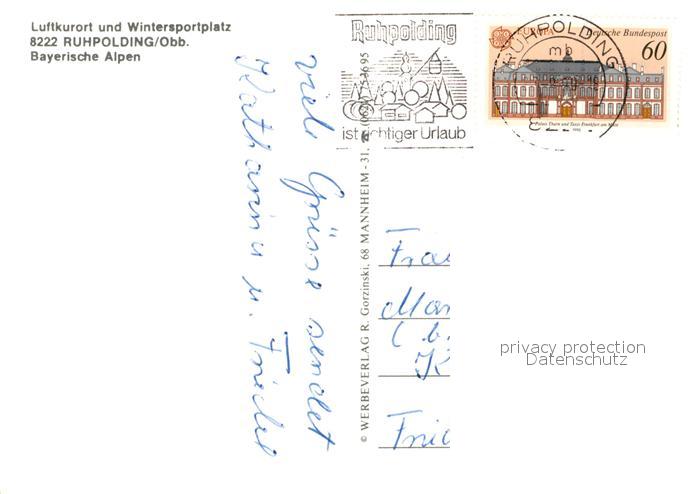 Luftkurort und Wintersportplatz
8222 RUHPOLDING/Obb.
Bayerische Alpen
Ruhpolding
ist richtiger Urlaub
RUHPOLDING
mb
EUROPA Deutsche Bundespost
60
Palais Thurn und Taxis Frankfurt am Main
1990
viele Grüsse sendet
Katharina u. Friedel
© WERBEVERLAG R. Gorzinski, 68 MANNHEIM-31,
Frau
Mar
K
Frie
privacy protection
Datenschutz